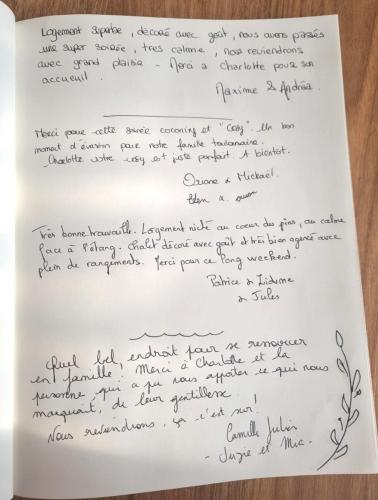 Logement superbe, décoré avec goût, nous avons passés
une super soirée, tres calme, nous reviendrons
avec grand plaisir - Merci a Charlotte pour son
accueil.
Maxime & Andréa.
Merci pour cette soirée cocooning et "cosy". Un bon
moment d'évasion pour notre famille toulousaine.
Charlotte votre cosy est juste parfait. A bientot.
Oriane & Mickaël.
Très bonne trouvaille. Logement niché au coeur des pins, au calme
face à l'étang. Chalet décoré avec goût et très bien agencé avec
plein de rangements. Merci pour ce long weekend.
Patrice &
& Jules
Quel bel endroit pour se ressourcer
en famille! Merci à Charlotte et la
personne qui a pu nous apporter ce qui nous
manquait, de leur gentillesse.
Nous reviendrons, ça c'est sur!
Camille Julien
- Suzie et